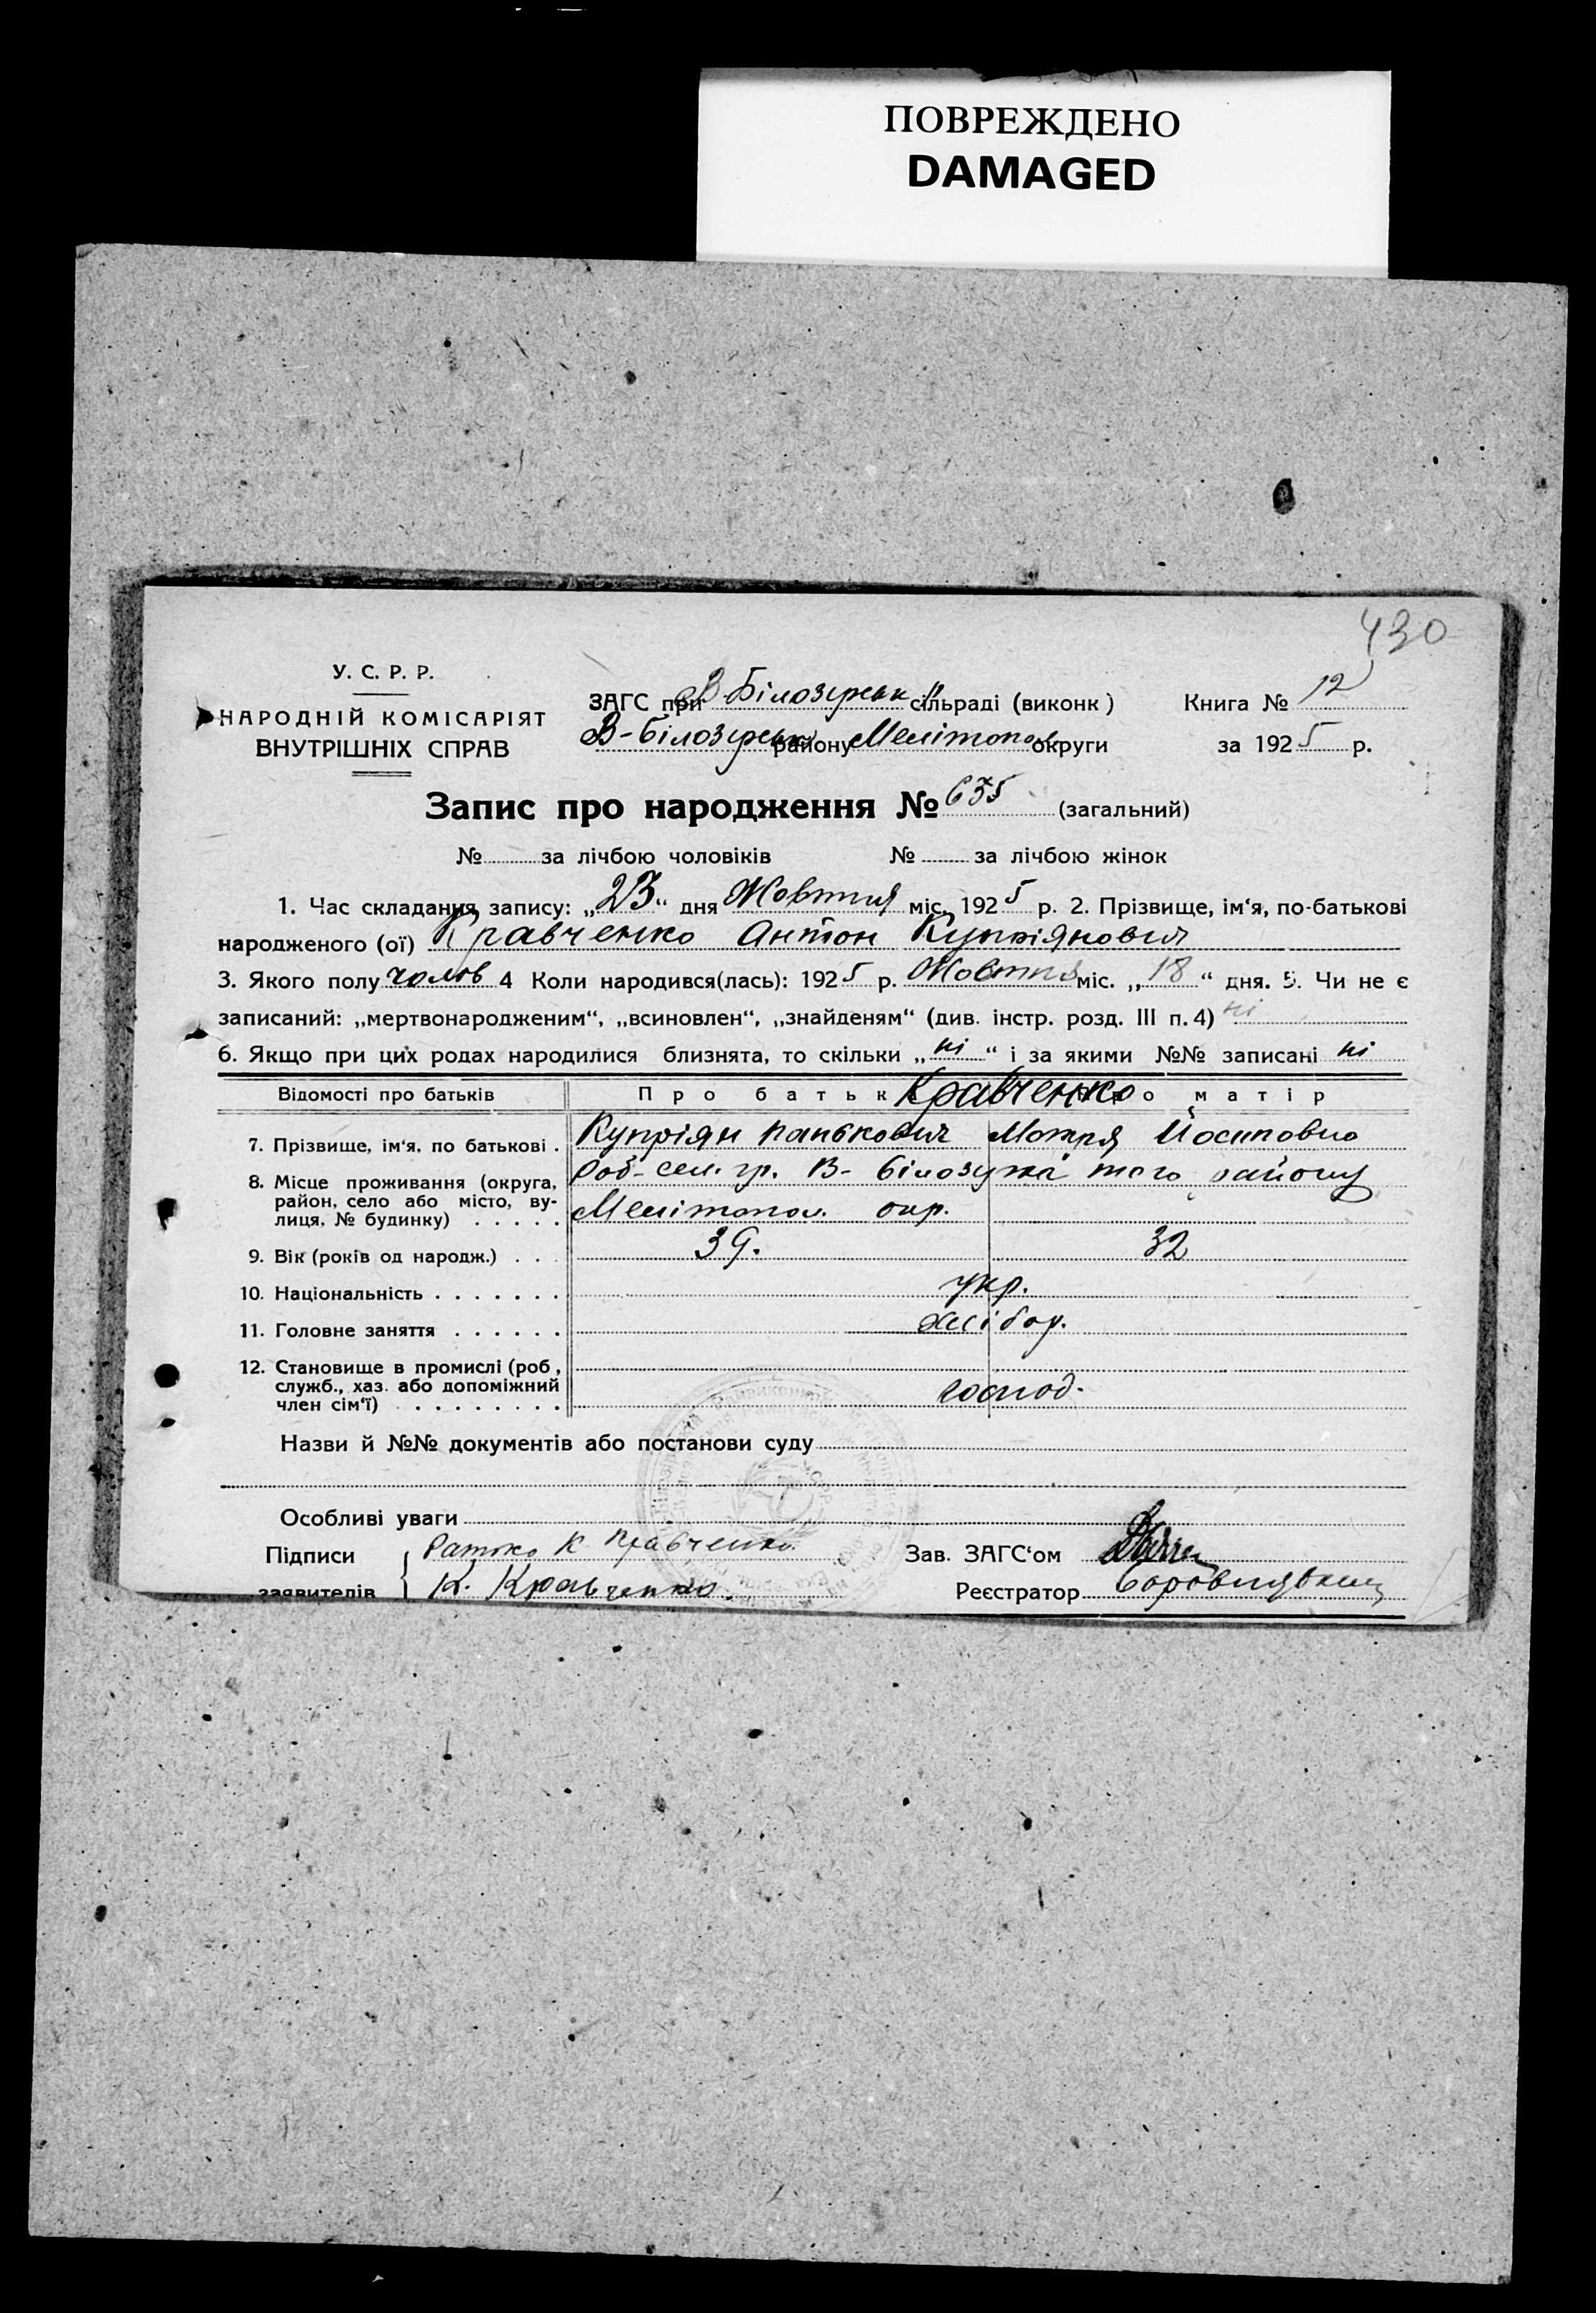 ПОВРЕЖДЕНО
DAMAGED
430
У. С. Р. Р.
НАРОДНІЙ КОМІСАРІЯТ
ВНУТРІШНІХ СПРАВ
ЗАГС при В-Білозерськ сільраді (виконк)
В-Білозерськ району Мелітопол округи
Книга № 12
за 1925 р.
Запис про народження № 635 (загальний)
№ за лічбою чоловіків № за лічбою жінок
1. Час складання запису: „23“ дня Жовтня міс. 1925 р. 2. Прізвище, ім'я, по-батькові
народженого (ої) Кравченко Антон Купріянович
3. Якого полу чолов 4 Коли народився(лась): 1925 р. Жовтня міс. „18“ дня. 5. Чи не є
записаний: „мертвонародженим“, „всиновлен“, „знайденям“ (див. інстр. розд. III п. 4) ні
6. Якщо при цих родах народилися близнята, то скільки „ні“ і за якими №№ записані ні
Відомості про батьків Про батьк Кравченко о матір
7. Прізвище, ім'я, по батькові . Купріян Панькович Мотря Йосиповна
8. Місце проживання (округа, район, село або місто, вулиця, № будинку) . . . . . сел. гр. В- Білозірка того району
Мелітопол. окр.
9. Вік (років од народж.) . . . 39. 32
10. Національність . . . . . . . укр.
11. Головне заняття . . . . . . хлібор.
12. Становище в промислі (роб, служб., хаз. або допоміжний член сім'ї) . . . . . . . . . господ.
Назви й №№ документів або постанови суду
Особливі уваги
Підписи К Кравченко
заявителів К. Кравченко.
Зав. ЗАГС'ом
Реєстратор